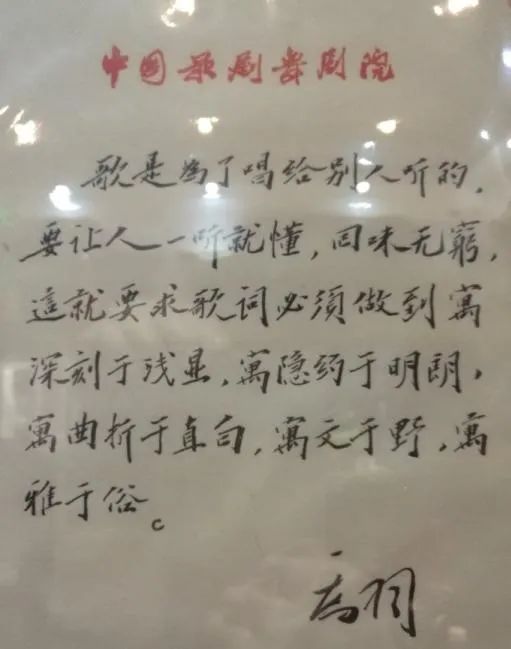 中国歌剧舞剧院
歌是为了唱给别人听的，
要让人一听就懂，回味无穷，
這就要求歌词必须做到寓
深刻于浅显，寓隐约于明朗，
寓曲折于直白，寓文于野，寓
雅于俗。
乔羽